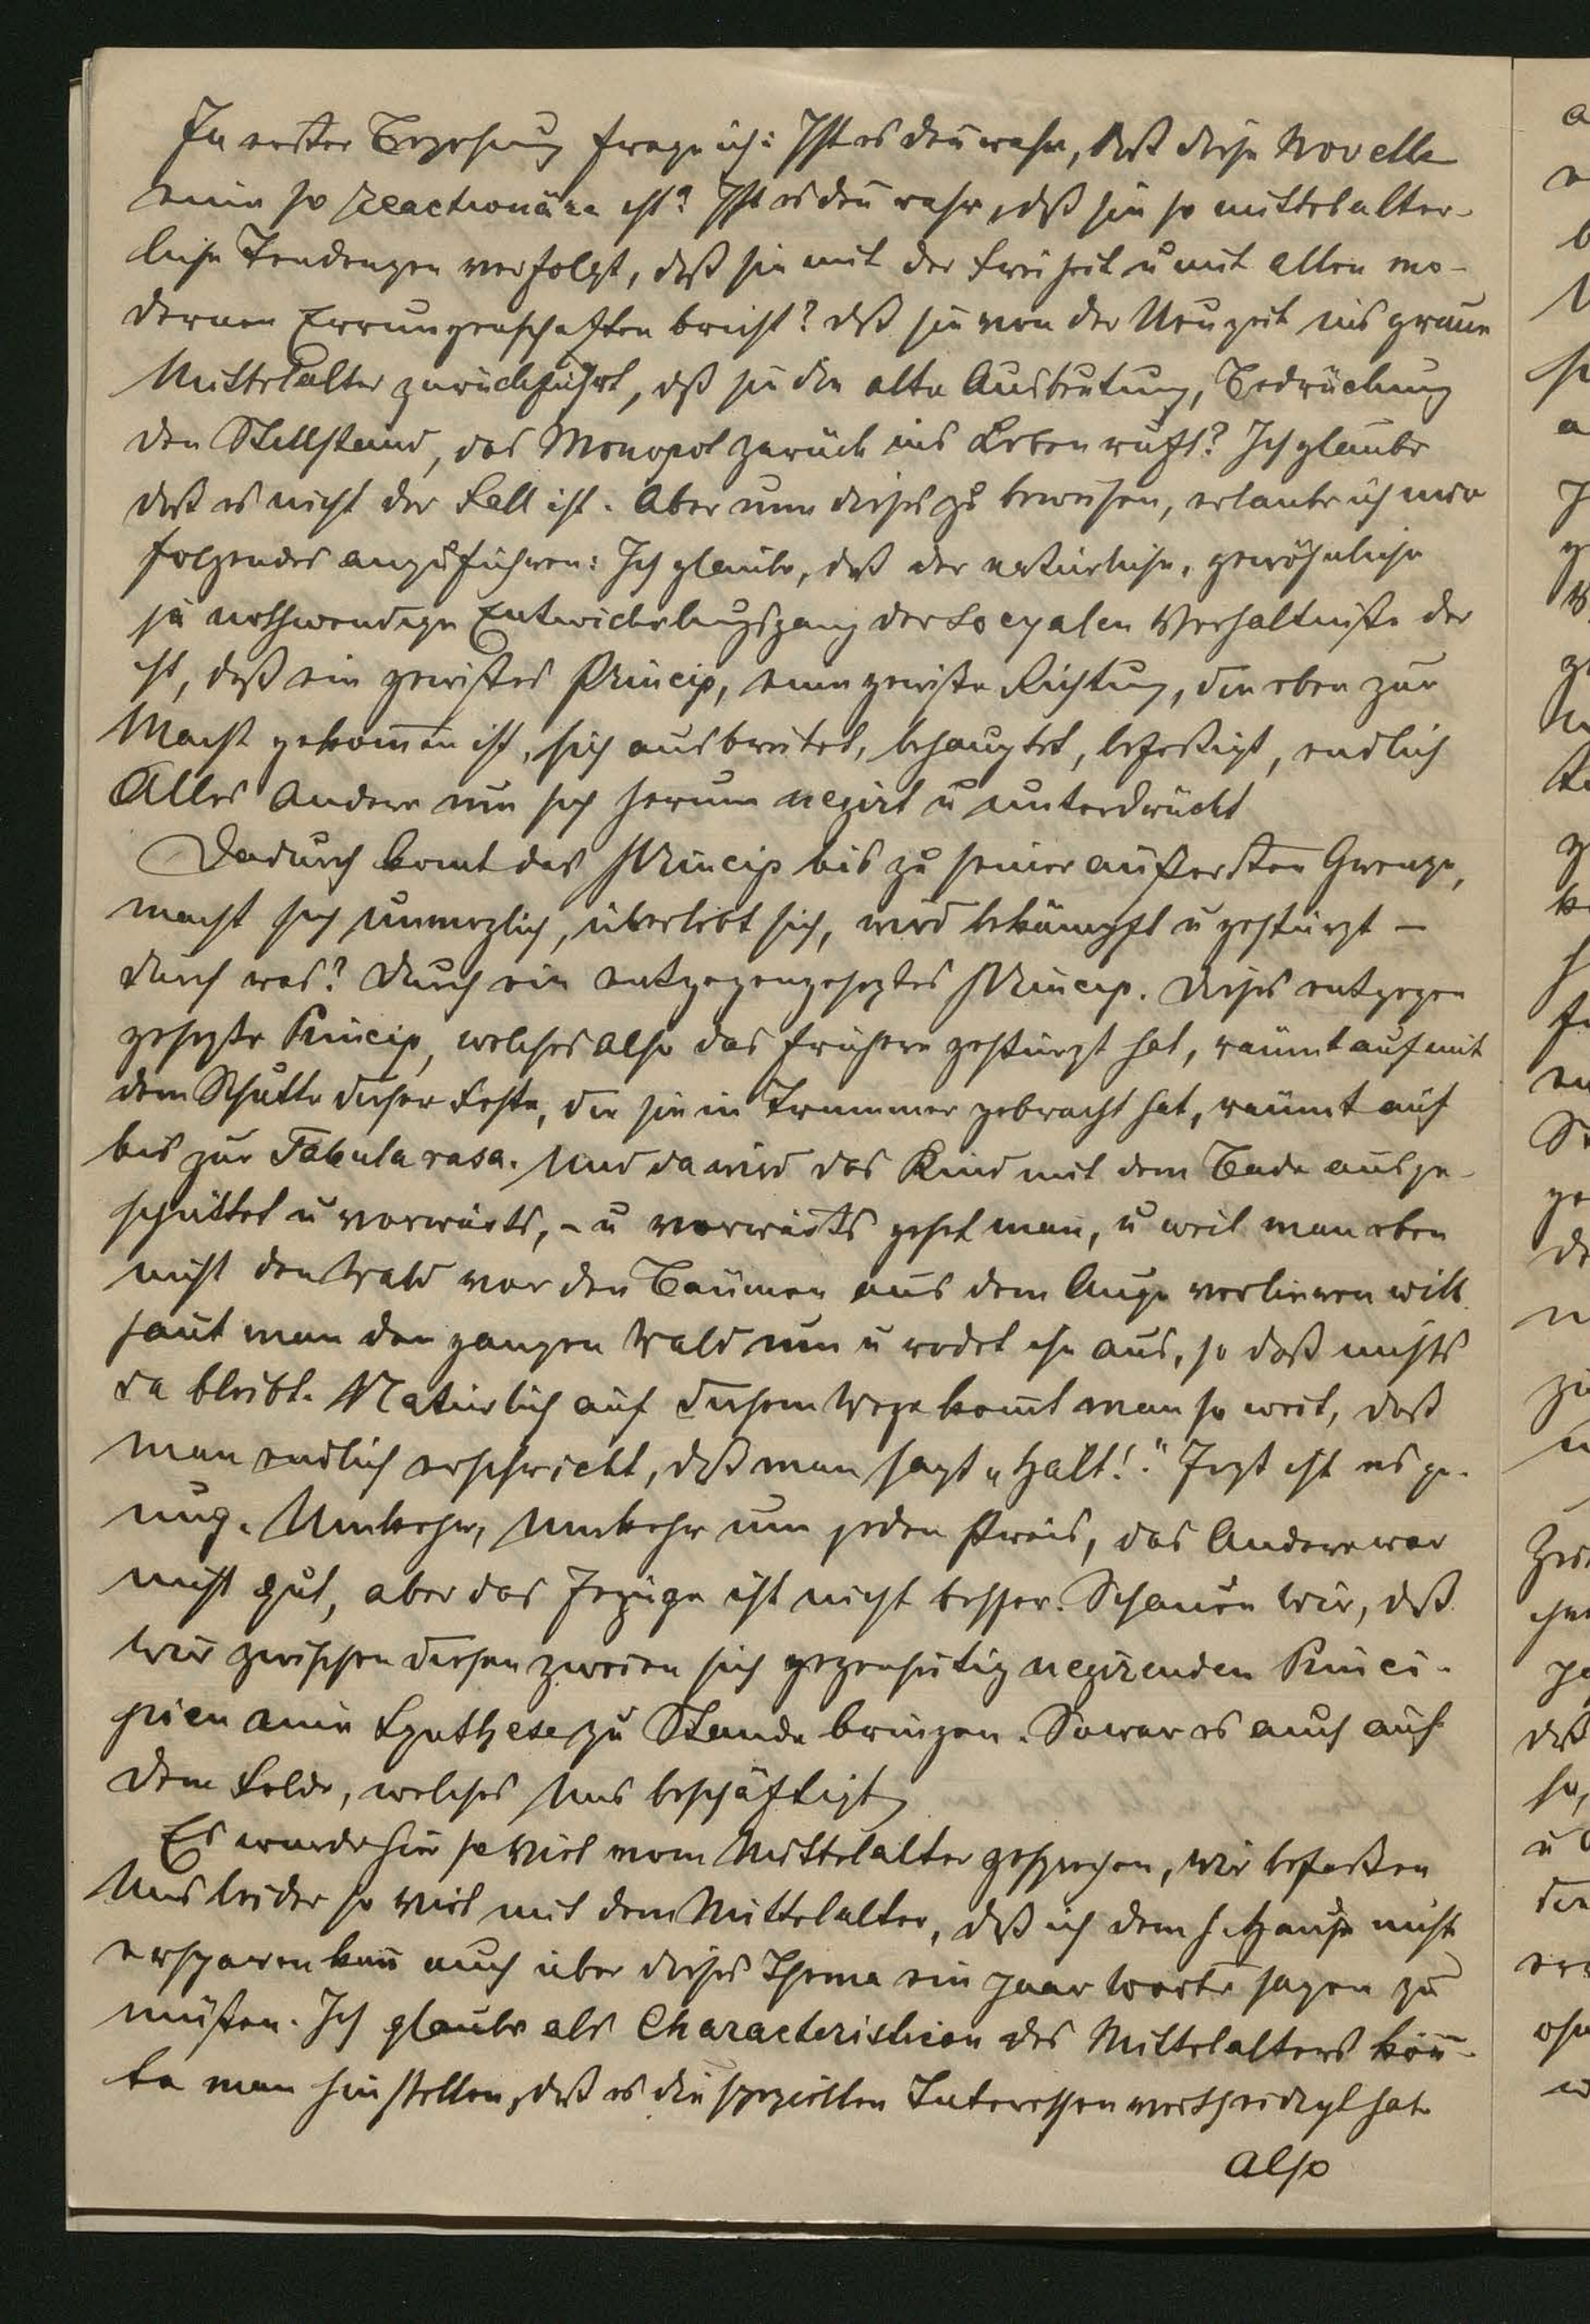 In erster Beziehung frage ich: Ist es den wahr, daß diese Novelle
eine so reactionäre ist? Ist es den wahr, dß sie so mittelalter-
liche Tendenzen verfolgt, daß sie mit der Freiheit u mit allen mo-
dernen Errungenschaften bricht? dß sie von der Neuzeit ins graue
Mittelalter zurückführt, dß sie die alte Ausbeutung, Bedrückung
den Stillstand, das Monopol zurück ins Leben ruft? Ich glaube
daß es nicht der Fall ist. Aber um dieses zu beweisen, erlaube ich mir
folgendes anzuführen: Ich glaube, daß der natürliche, gewöhnliche
ja nothwendige Entwickelungsgang der socyalen Verhältniße der
ist, daß ein gewißes Princip, eine gewiße Richtung, die eben zur
Macht gekom̄en ist, sich ausbreitet, behauptet, befestigt, endlich
Alles Andere um sich herum negirt u unterdrückt
Dadurch komt das Princip bis zu seiner äußersten Grenze,
macht sich unmöglich, überlebt sich, wird bekämpft u gestürzt –
durch was? Durch ein entgegengeseztes Princip. Dieses entgegen
gesezte Princip, welches also das frühere gestürzt hat, räumt auf mit
dem Schutte dieser Feste, die sie in Trümmer gebracht hat, räumt auf
bis zur Tabula rasa. Und da wird das Kind mit dem Bade ausge-
schüttet u vorwärts, – u vorwärts gehet man, u weil man eben
nicht den Wald vor den Bäumen aus dem Auge verlieren will
haut man den ganzen Wald um u rodet ihn aus, so daß nichts
da bleibt. Natürlich auf diesem Wege kom̄t man so weit, daß
man endlich erschrickt, dß man sagt „Halt!“ Jezt ist es ge-
nug. Umkehr, Umkehr um jeden Preis, das Andere war
nicht gut, aber das Jezige ist nicht besser. Schauen wir, dß
wir zwischen diesen zweien sich gegenseitig negirenden Princi-
pien eine Synthese zu Stande bringen. So war es auch auf
dem Felde, welches Uns beschäftigt
Es wurde hier so viel vom Mittelalter gesprochen, wir befaßen
Uns leider so viel mit dem Mittelalter, dß ich dem h. Hause nicht
ersparen kan̄ auch über dieses Thema ein paar Worte sagen zu
müßen. Ich glaube als Characteristicon des Mittelalters kön̄-
te man hinstellen, daß es die speziellen Interessen vertheidigt hat.
Also